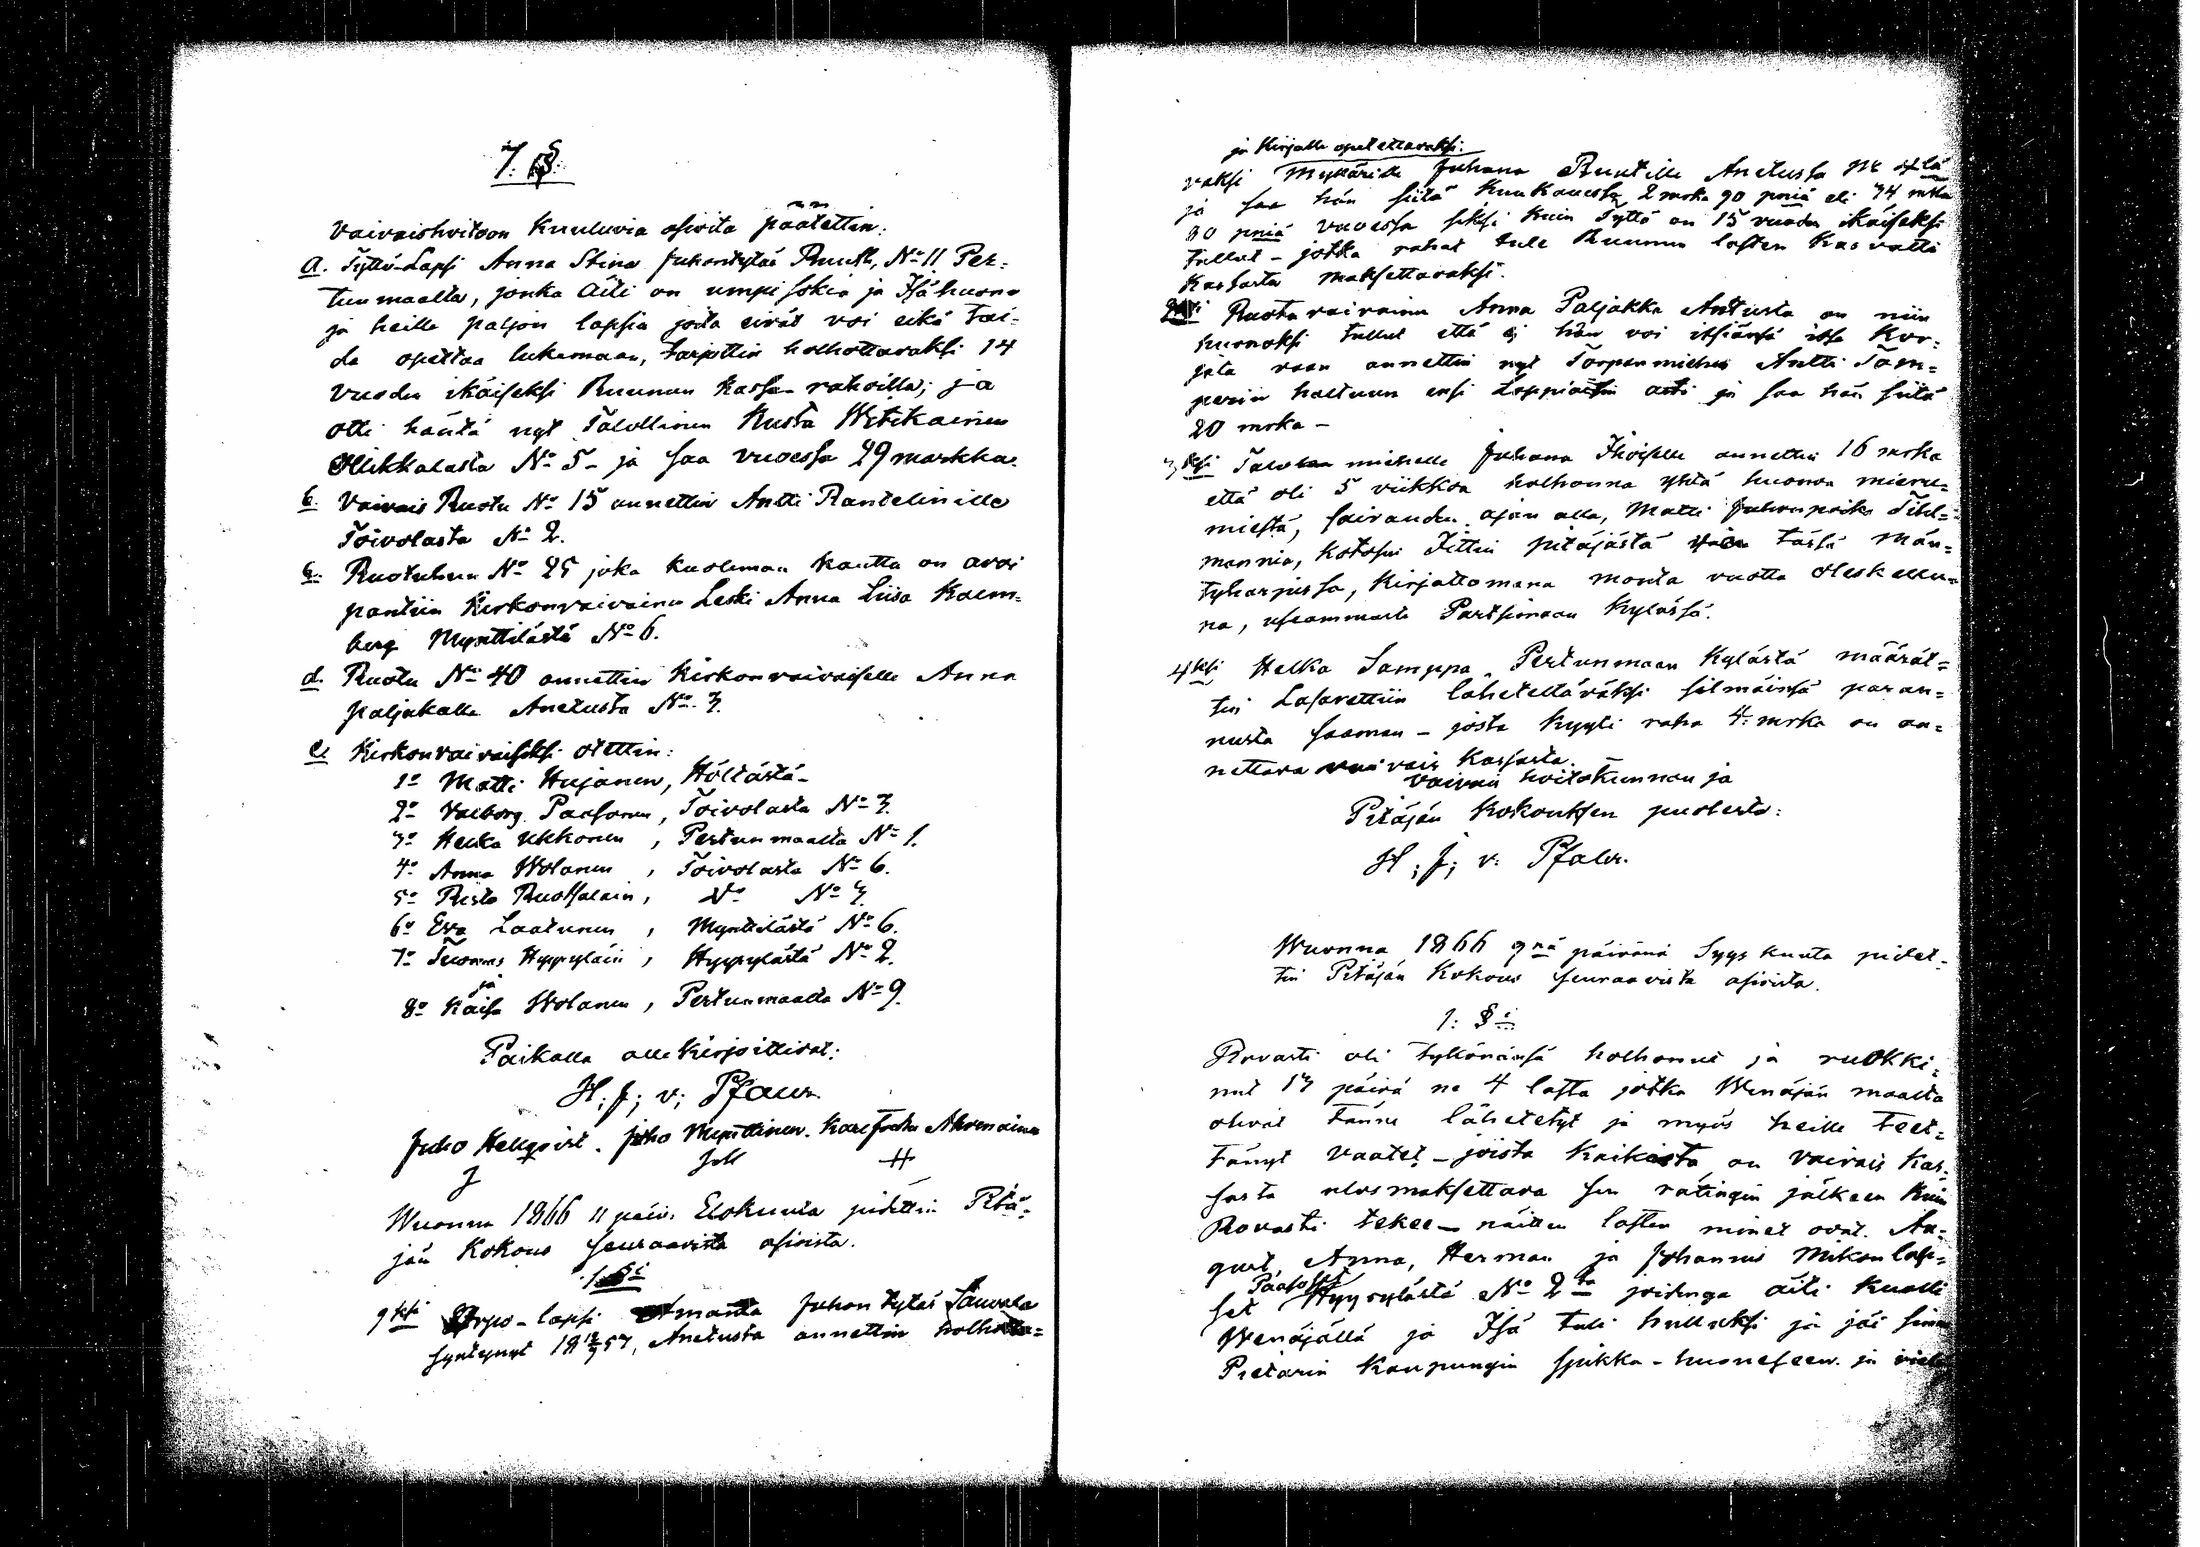 7. §.
Vaivaishoitoon Kuuluvia asioita päätettin:
a. Tyttö-Lapsi Anna Stina Juhontytär Ruuth, No 11 Per-
tunmaalta, jonka Äiti on umpi sokia ja Isä huono
ja heillä paljon lapsia joita eivät voi eikä tai-
da opettaa lukemaan, tarjottin holhottavaksi 14
vuoden ikäiseksi Ruunun Kassan rahoilla; ja
otti häntä nyt Talollinen Kusta Wetikainen
Ollikkalasta No 5 - ja saa vuodessa 29 markka.
b. Vaivais Ruotu No 15 annettin Antti Rantelinille
Toivolasta No 2.
c. Ruotuhun No 25 joka kuoleman kautta on avoi
pantiin Kirkonvaivainen Leski Anna Liisa
berg Mynttilästä No 6.
d. Ruotu No 40 annettin Kirkonvaivaiselle Anna
paljakalle Anetusta No 3.
e. Kirkonvaivaiseksi otettin:
1o Matti Hujanen, Höltästä -
2o Valborg Paasonen, Toivolasta No 3.
3o Helka Ukkonen, Pertunmaalta No 1.
4o Anna Wolanen, Toivolasta No 6.
5o Risto Ruottalain, Do No 3.
6o Eva Laatunen, Mynttilästä No 6.
7o Tuomas Hyypyläin, Hyypylästä No 2.
ja
8o Kaisa Wolanen, Pertunmaalta No 9.
Paikalla alle Kirjoittivat:
H; J; v; Pfaler.
Juho Hellqvist. Juho Mynttinen. Karl Ahvenainen
Wuonna 1866 11 päiv. Elokuuta pidettin Pitä-
jän Kokous seuraavista asioista.
1 §i
1ksi Orpo-lapsi Amanta Juhon tytär Sauvala
syntynyt 18 57, Anetusta annettin holhotta-
ja Kirjalle opetettavaksi:
vaksi Myllärille Juhana Ruutille Anetusta No 4ltä
ja saa hän siitä Kuukauessa 2 mrka 90 pniä eli 34 mrka
80 pniä vuoessa siksi kuin Tyttö on 15 vuoden ikäiseksi
tullut - jotka rahat tule Ruunun lasten Kasvatti
Kassasta maksettavaksi.
2ksi Ruotuvaivainen Anna Paljakka Antusta on niin
huonoksi tullut että ei hän voi itsiänsä itse Kor-
jata vaan annettin nyt Torpanmiehen Antti Tam-
perin haltuun ensi Loppiaisiin asti ja saa hän siitä
20 mrka -
3ksi Talonmiehelle Juhana Ihoiselle annettin 16 mrka
että oli 5 viikkoa holhonna yhtä huonoa mieru-
miestä, sairauden ajan alla, Matti Juhonpoika Tihl-
mannia, kotosin Jittin pitäjästä tässä Män-
tyharjussa, Kirjattomana monta vuotta oleskellu-
na, useammasti Partsimaan Kylässä.
4ksi Helka Samppa Pertunmaan Kylästä määrät-
tin Lasarettiin lähetettäväksi silmäinsä paran-
nusta saaman - josta kyyti raha 4: mrka on an-
nettava vaivais Kassasta.
Vaivais hoitokunnan ja
Pitäjän Kokouksen puolesta:
H; J; v: Pfaler.
Wuonna 1866 9nä päivänä Syys kuuta pidet-
tin Pitäjän Kokous seuraavista asioista.
1: §i
Rovasti oli tyköninsä holhonut ja ruokki-
nut 13 päivä ne 4 lasta jotka Wenäjän maalta
olivat tänne lähetetyt ja myös heille teet-
tänyt vaatet - joista kaikista on vaivais Kas-
sasta ulosmaksettava sen rätingin jälkeen kuin
Rovasti tekee - näitten lasten nimet ovat. Au-
gust, Anna, Herman ja Johannes Mikon lap-
set Paasoset Hyypylästä No 2ta joidenga äiti kuolli
Wenäjällä ja Isä tuli hulluksi ja jäi sinne
Pietarin Kaupungin spikka-huoneseen. ja vielä